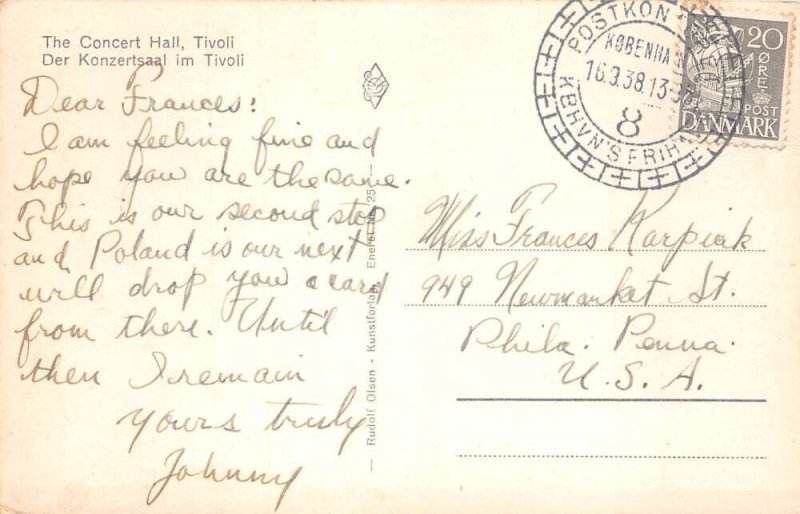 The Concert Hall, Tivoli
Der Konzertsaal im Tivoli
Dear Frances:
I am feeling fine and
hope you are the same.
This is our second stop
and Poland is our next
will drop you a card
from there. Until
then I remain
Yours truly
Johnny
Rudolf Olsen - Kunstforlag. Eneret
POSTKON
KØBENHA
16.9.38.13-
8
KBHVN'S FRIHA
20
ØRE
POST
DANMARK
Miss Frances Karpiak
949 Newmarket St.
Phila. Penna.
U. S. A.